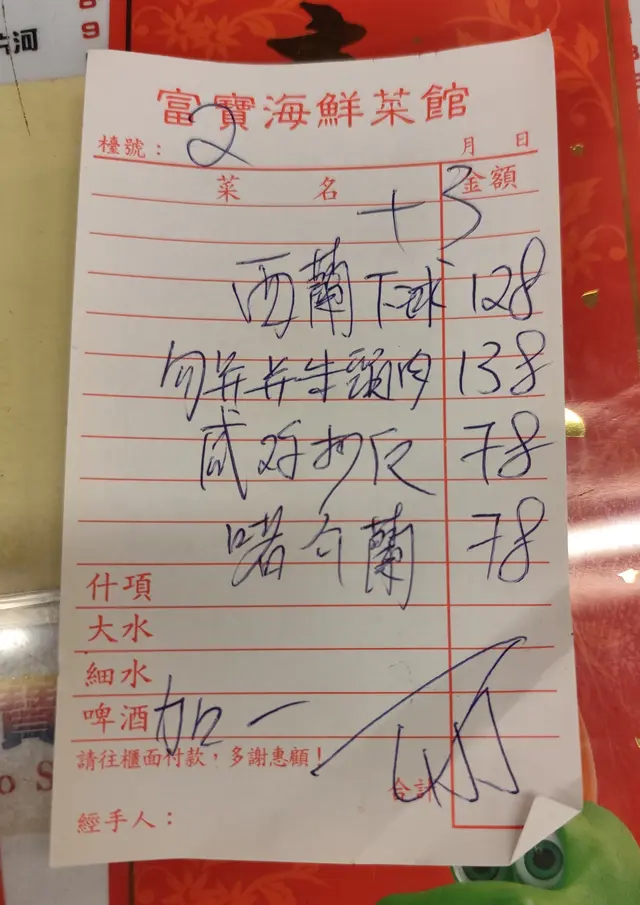 片河
富寶海鮮菜館
檯號：2 月 日
菜 名 金額
十3
西蘭下球 128
牛頭肉 138
咸 78
啫介蘭 78
什項
大水
細水
啤酒 加一
請往櫃面付款，多謝惠顧！
合計
經手人：